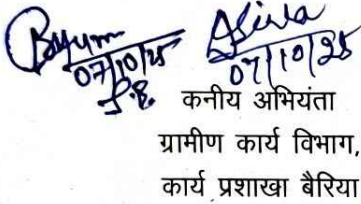 07/10/25 07/10/25
J.E.
कनीय अभियंता
ग्रामीण कार्य विभाग,
कार्य प्रशाखा बैरिया